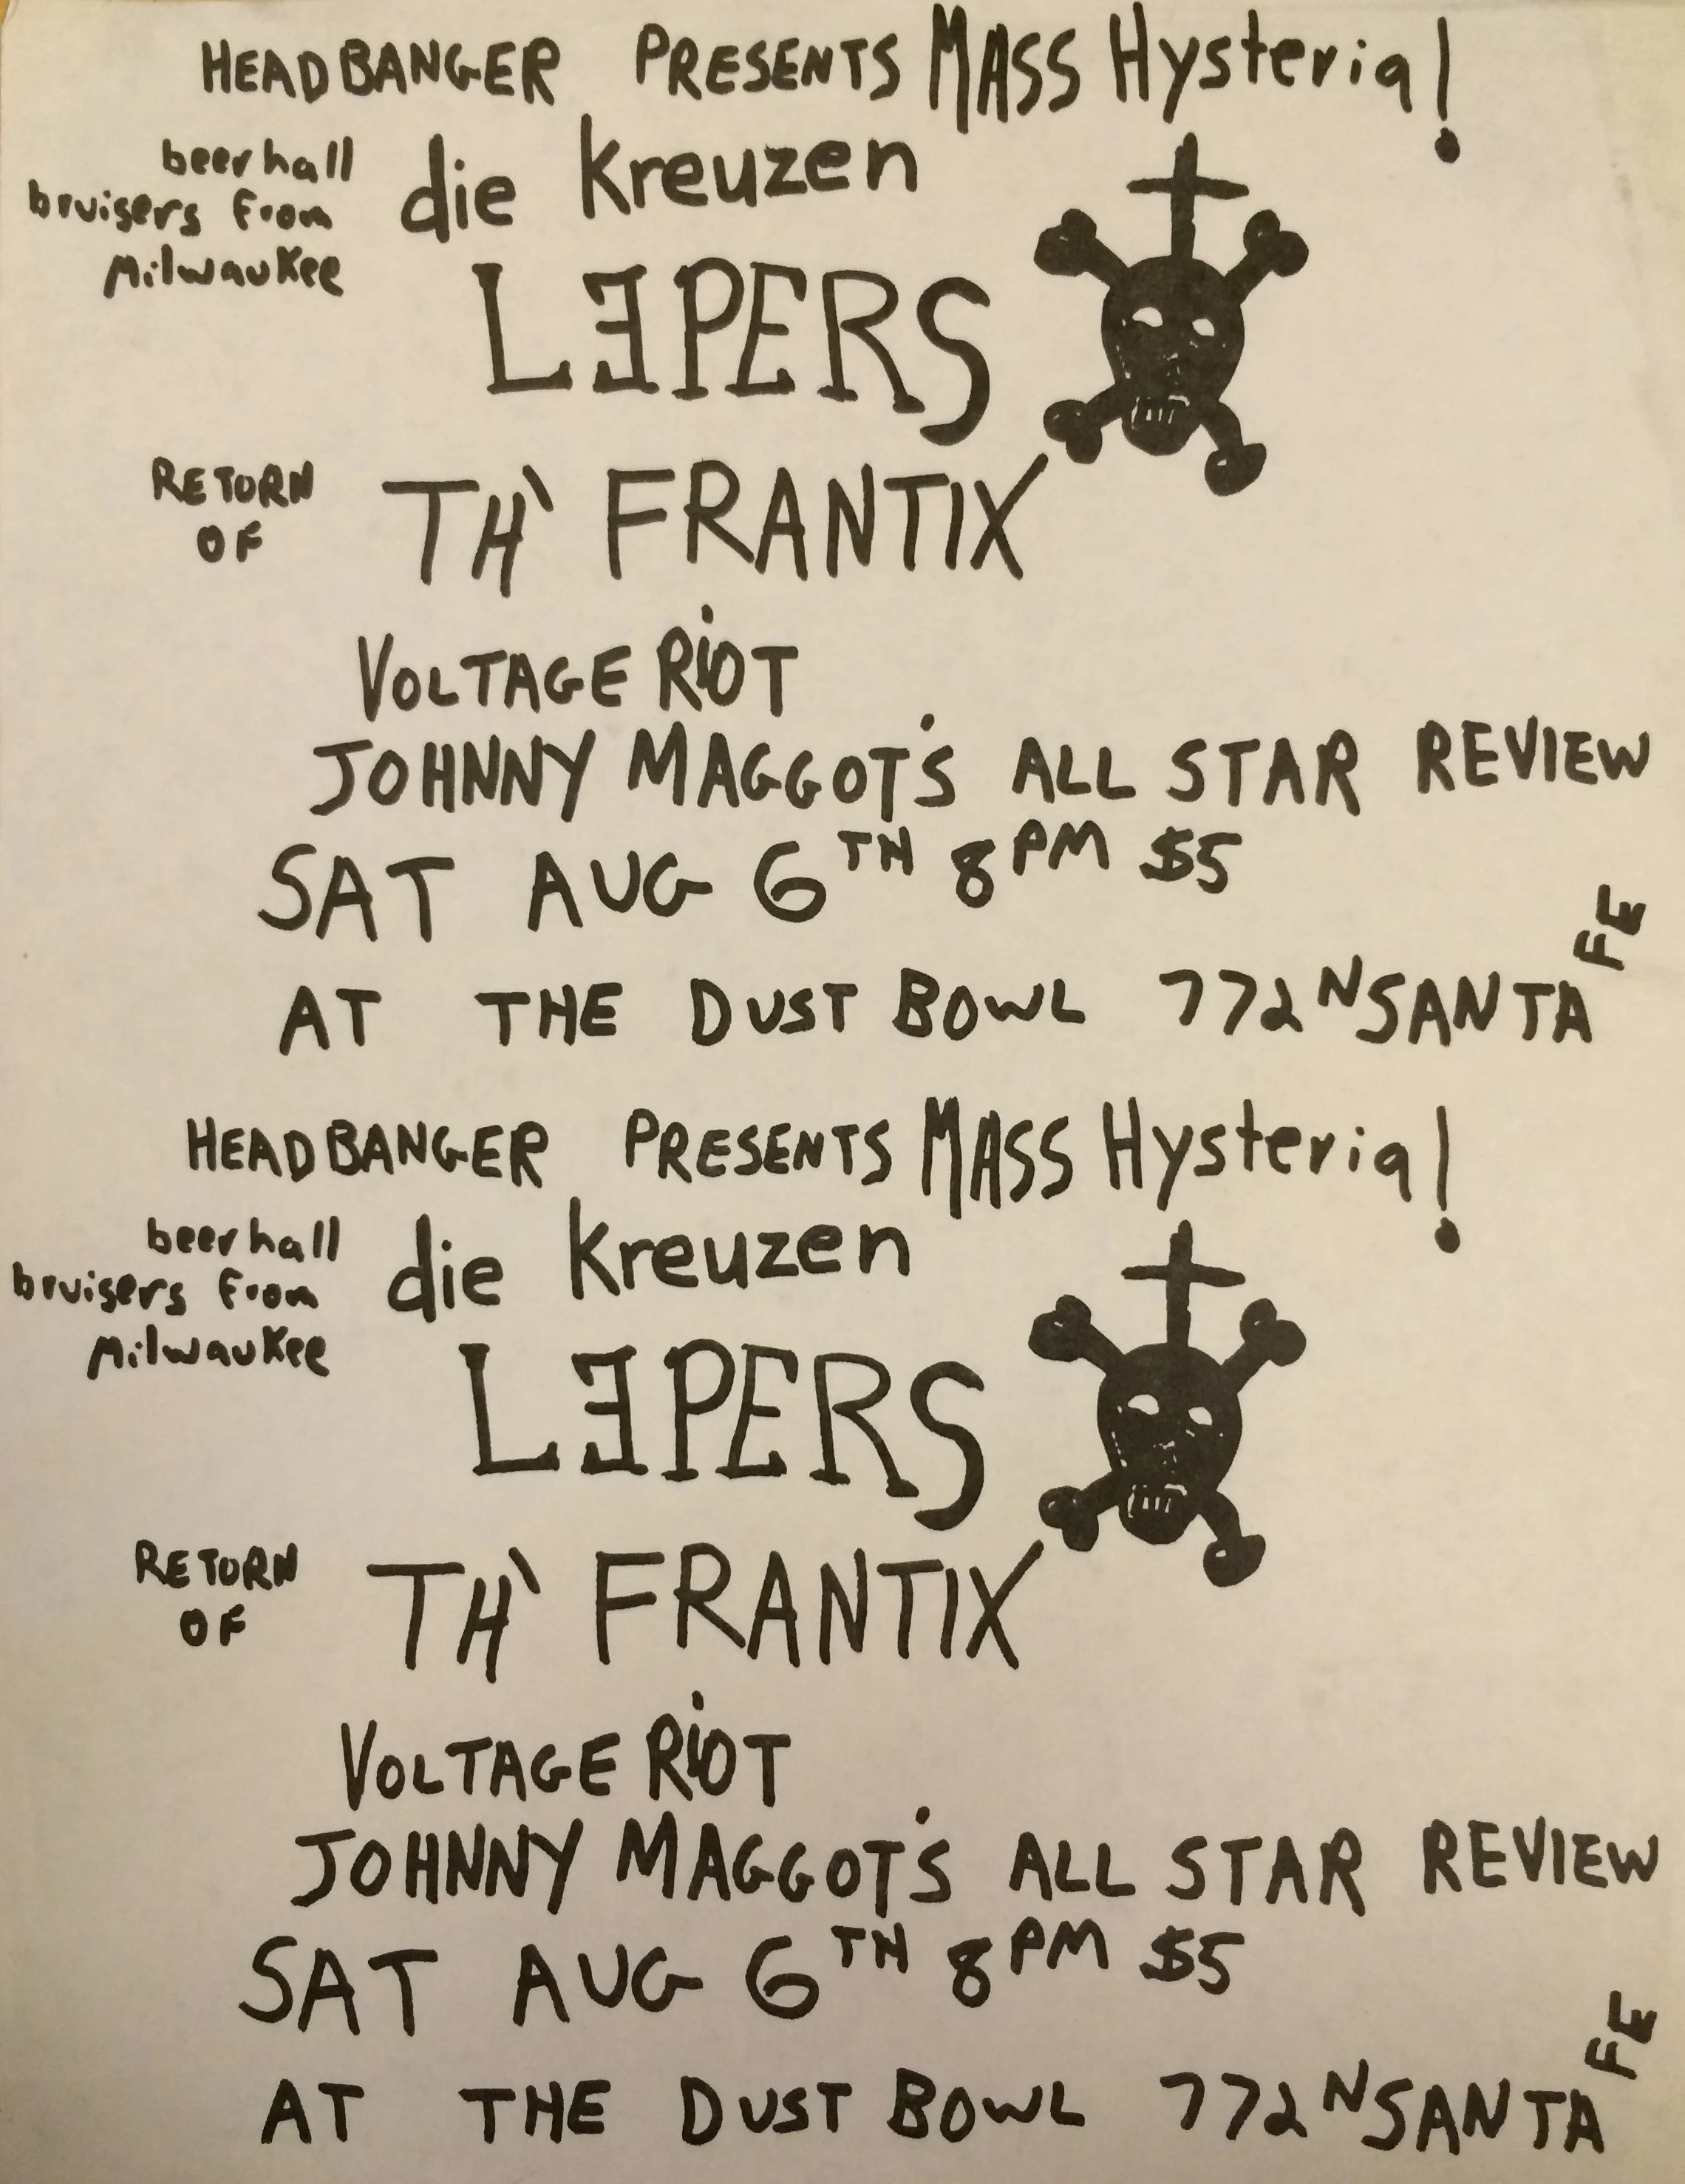 HEADBANGER PRESENTS MASS Hysteria!
beer hall
bruisers from
Milwaukee
die kreuzen
LEPERS
RETURN
OF
TH' FRANTIX
VOLTAGE RiOT
JOHNNY MAGGOT'S ALL STAR REVIEW
SAT AUG 6TH 8PM $5
AT THE DUST BOWL 772 N SANTA FE
HEADBANGER PRESENTS MASS Hysteria!
beer hall
bruisers from
Milwaukee
die kreuzen
LEPERS
RETURN
OF
TH' FRANTIX
VOLTAGE RiOT
JOHNNY MAGGOT'S ALL STAR REVIEW
SAT AUG 6TH 8PM $5
AT THE DUST BOWL 772 N SANTA FE